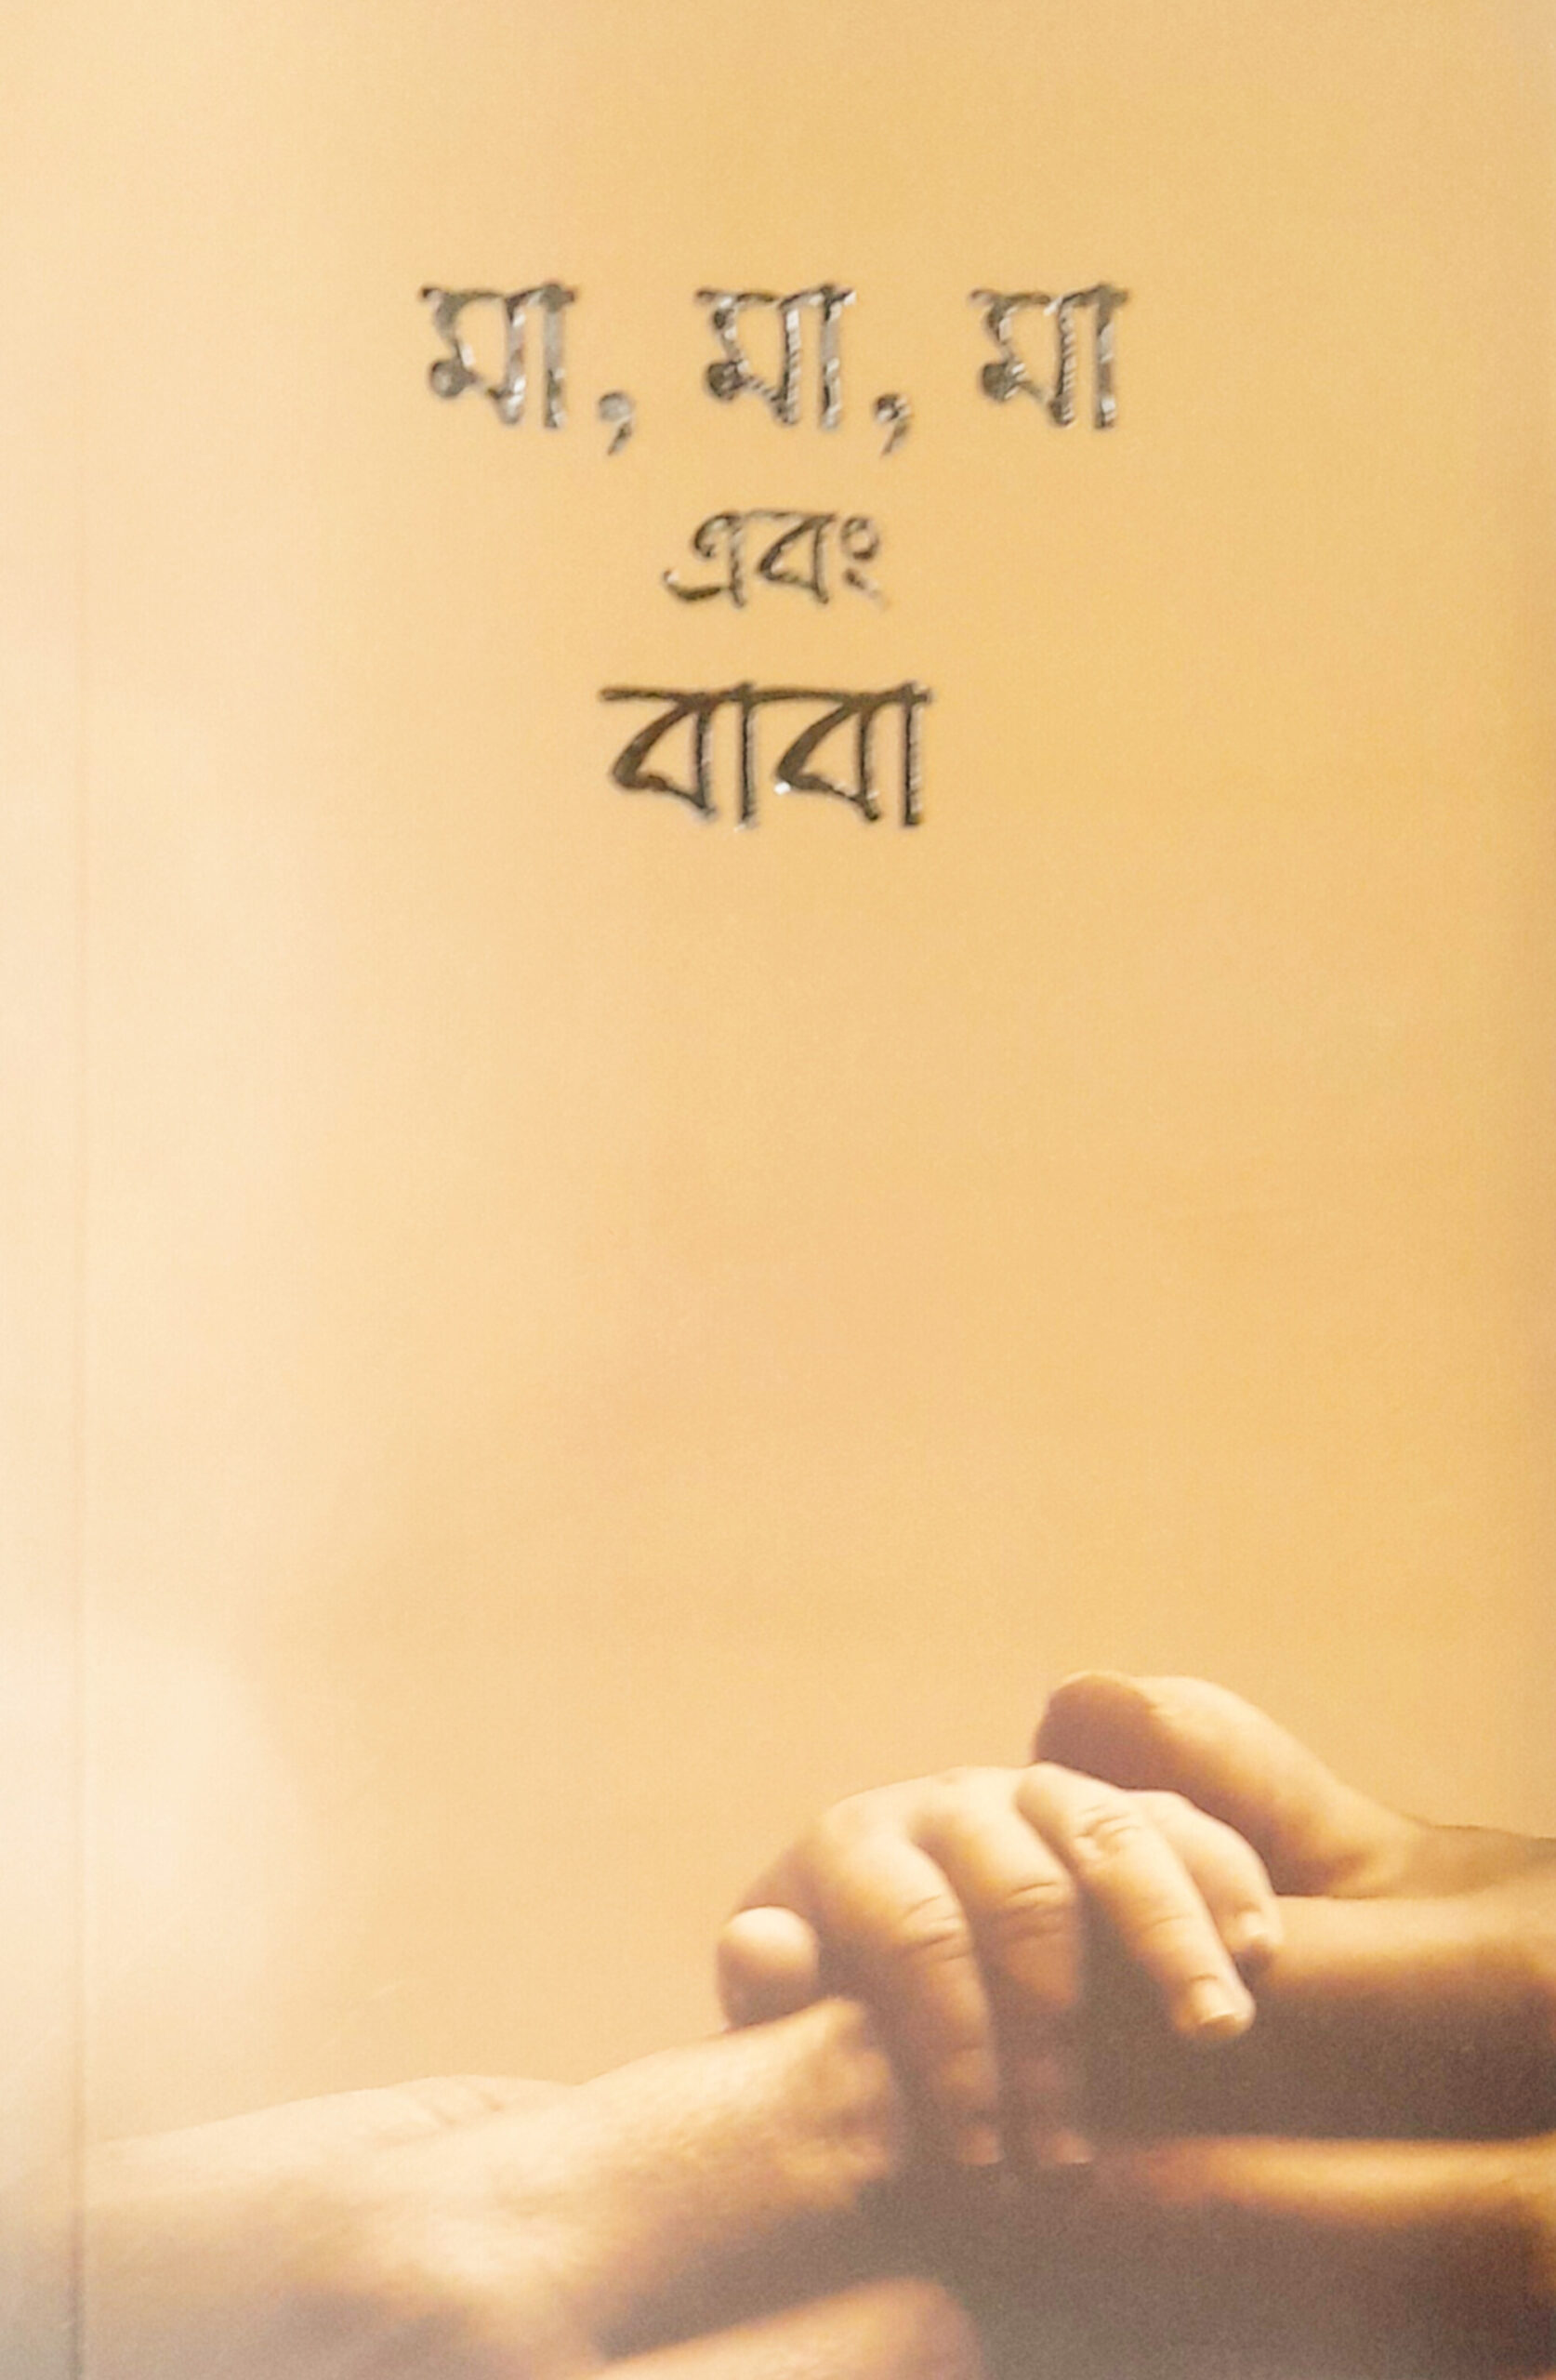 মা, মা, মা
এবং
বাবা